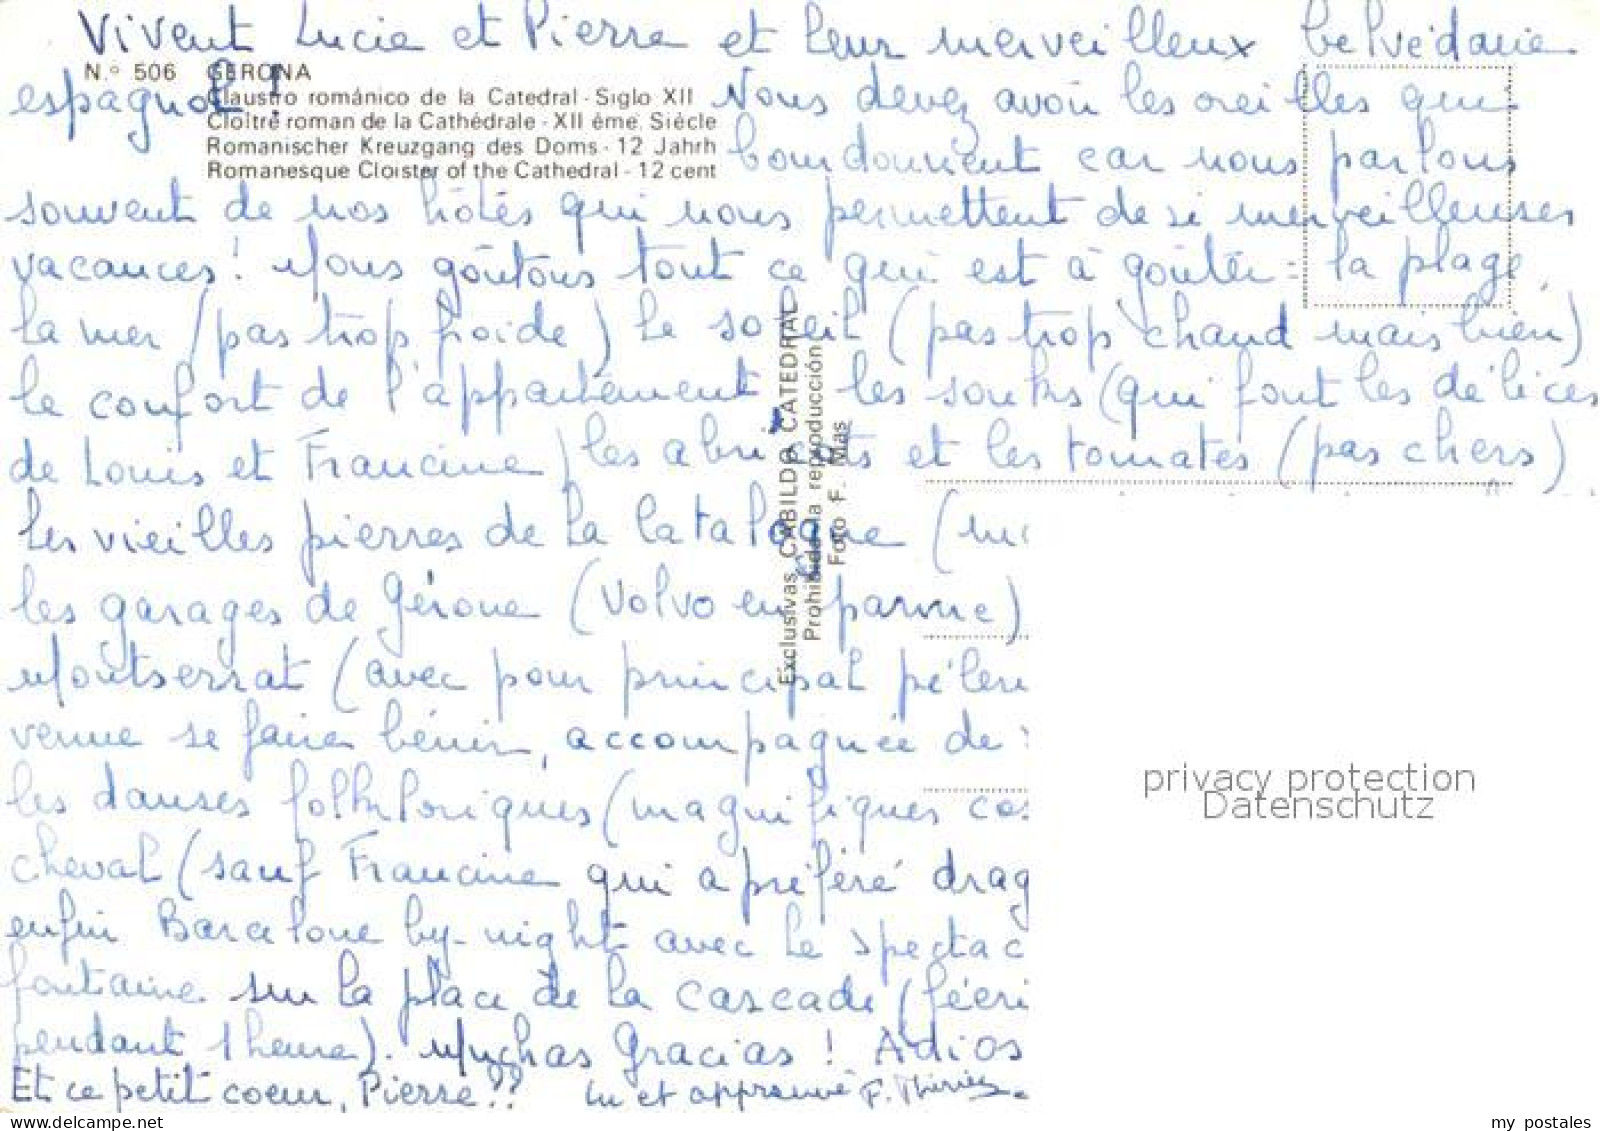 Vivent Lucie et Pierre et leur merveilleux belvédaire
N.° 506 GERONA
espagnol !
Claustro románico de la Catedral - Siglo XII
Cloître roman de la Cathédrale - XII ème. Siècle
Romanischer Kreuzgang des Doms - 12 Jahrh
Romanesque Cloister of the Cathedral - 12 cent
Vous devez avoir les oreilles qui
bourdonnent car nous parlons
souvent de nos hôtes qui nous permettent de si merveilleuses
vacances ! Nous goûtons tout ce qui est à goûter : la plage,
la mer (pas trop froide) le soleil (pas trop chaud mais bien)
le confort de l'appartement, les souks (qui font les délices
de Louis et Francine) les abricots et les tomates (pas chers)
Les vieilles pierres de la Catalogne
les garages de Gérone (Volvo en panne)
Montserrat (avec pour principal péleri
venue se faire bénir, accompagnée de
les danses folkloriques (magnifiques cos
cheval (sauf Francine qui a préféré drag
enfin Barcelone by-night avec le spectac
fontaine sur la place de la cascade (féeri
pendant 1 heure). Muchas Gracias ! Adios
Et ce petit coeur, Pierre ?? Lu et approuvé F.
Exclusivas CABILDO CATEDRAL
Prohibida la reproducción
Foto F. Mas
privacy protection
Datenschutz
my postales